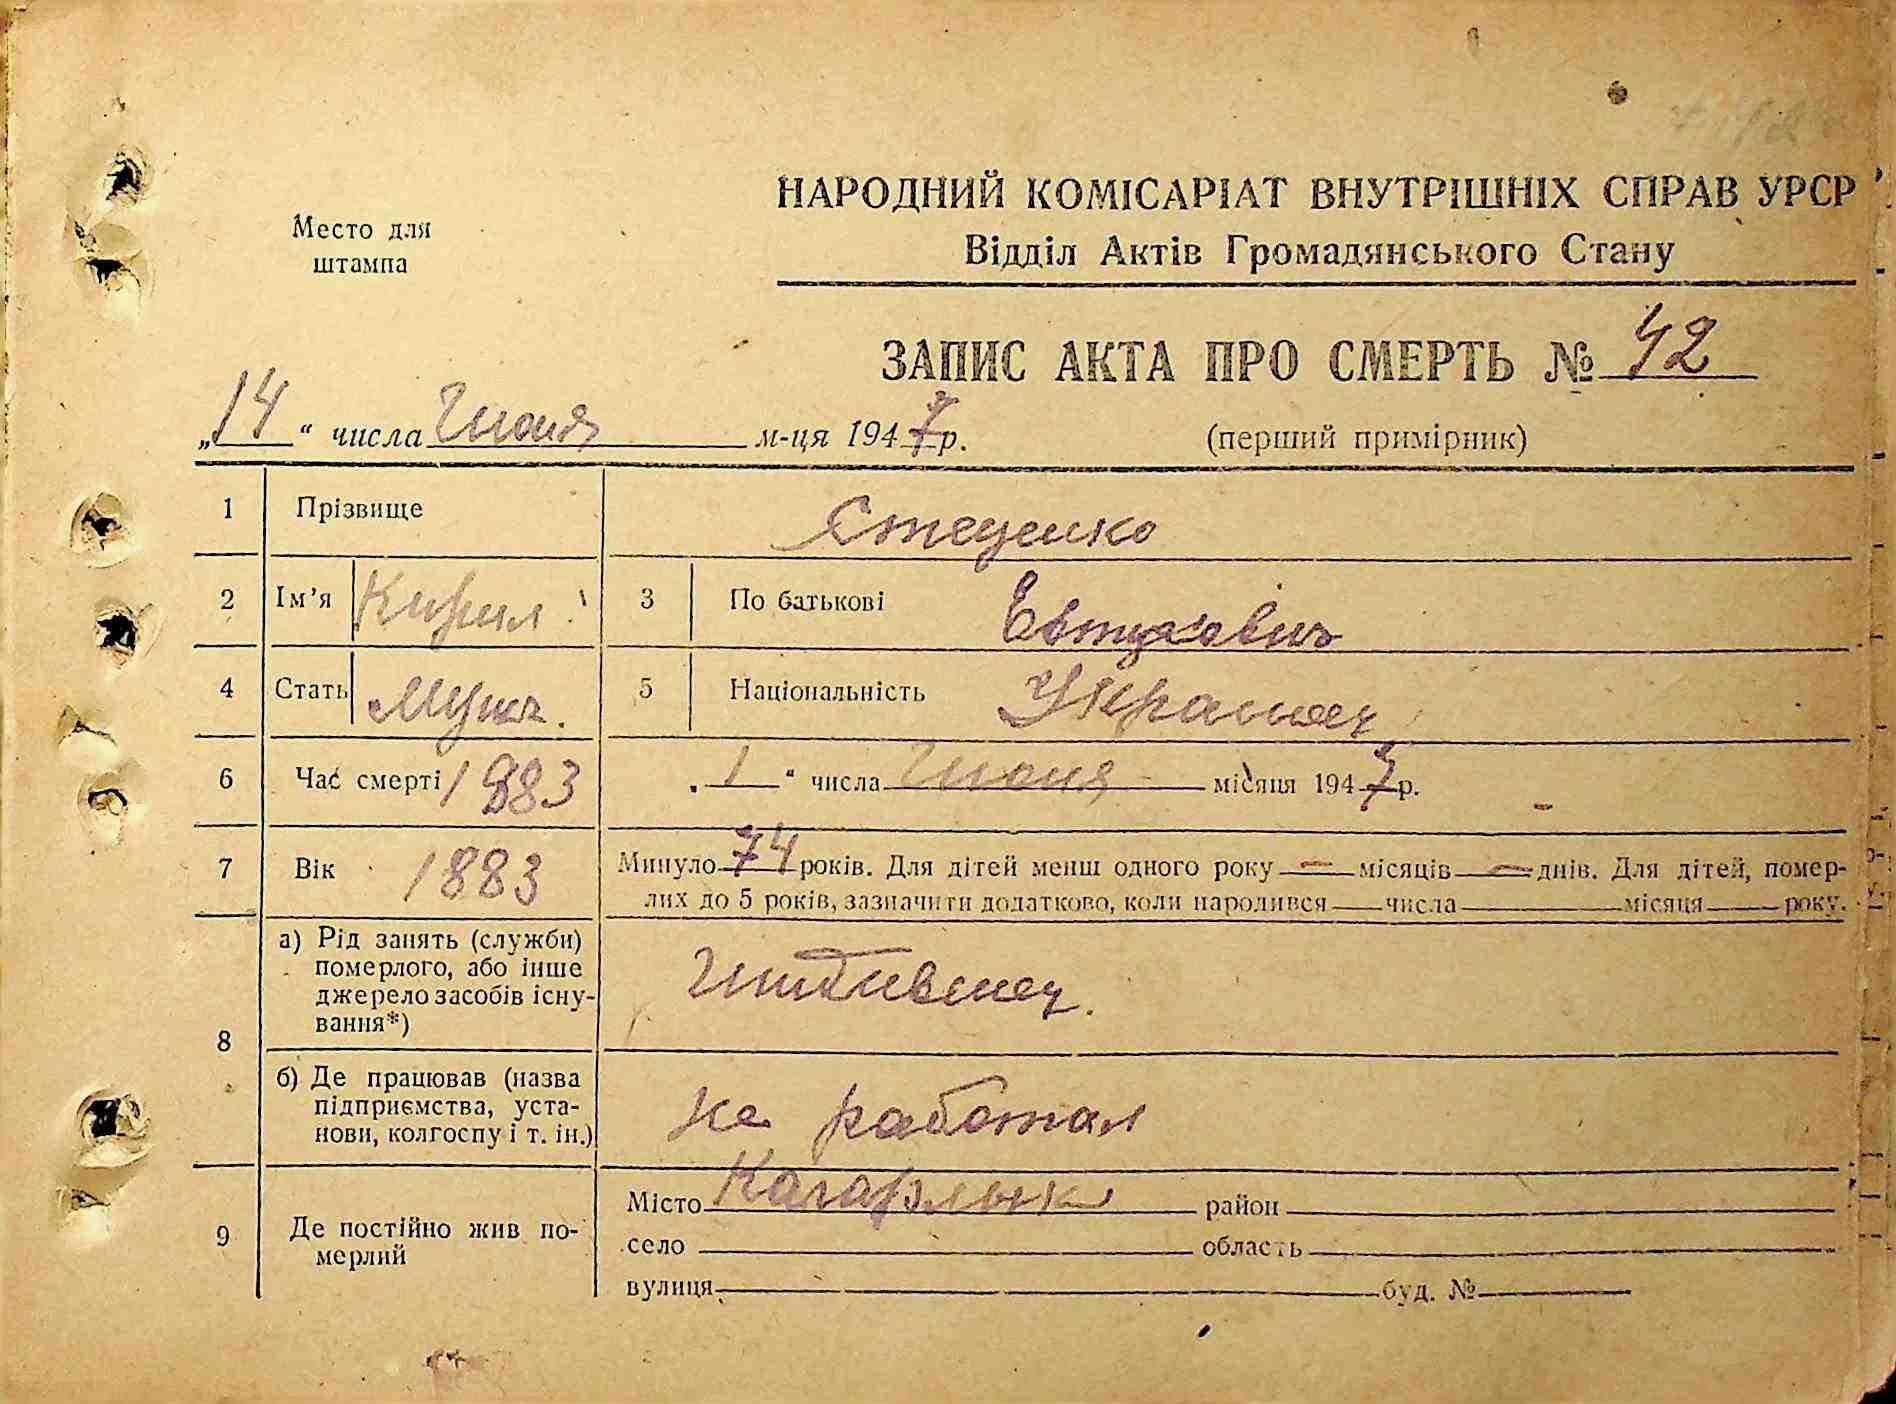 НАРОДНИЙ КОМІСАРІАТ ВНУТРІШНІХ СПРАВ УРСР
Место для
штампа
Відділ Актів Громадянського Стану
ЗАПИС АКТА ПРО СМЕРТЬ № 42
„14“ числа Июня м-ця 1947 р. (перший примірник)
1 Прізвище Стеценко
2 Ім’я Кирил 3 По батькові Евтухович
4 Стать Мужч. 5 Національність Украинец
6 Час смерті 1883 „1“ числа Июня місяця 1947 р.
7 Вік 1883 Минуло 74 років. Для дітей менш одного року — місяців — днів. Для дітей, помер-
лих до 5 років, зазначити додатково, коли народився числа місяця року.
8 а) Рід занять (служби)
померлого, або інше
джерело засобів існу-
вання*)
Иждивенец.
б) Де працював (назва
підприємства, уста-
нови, колгоспу і т. ін.)
не работал
9 Де постійно жив по-
мерлий
Місто Кагарлык район
село область
вулиця буд. №